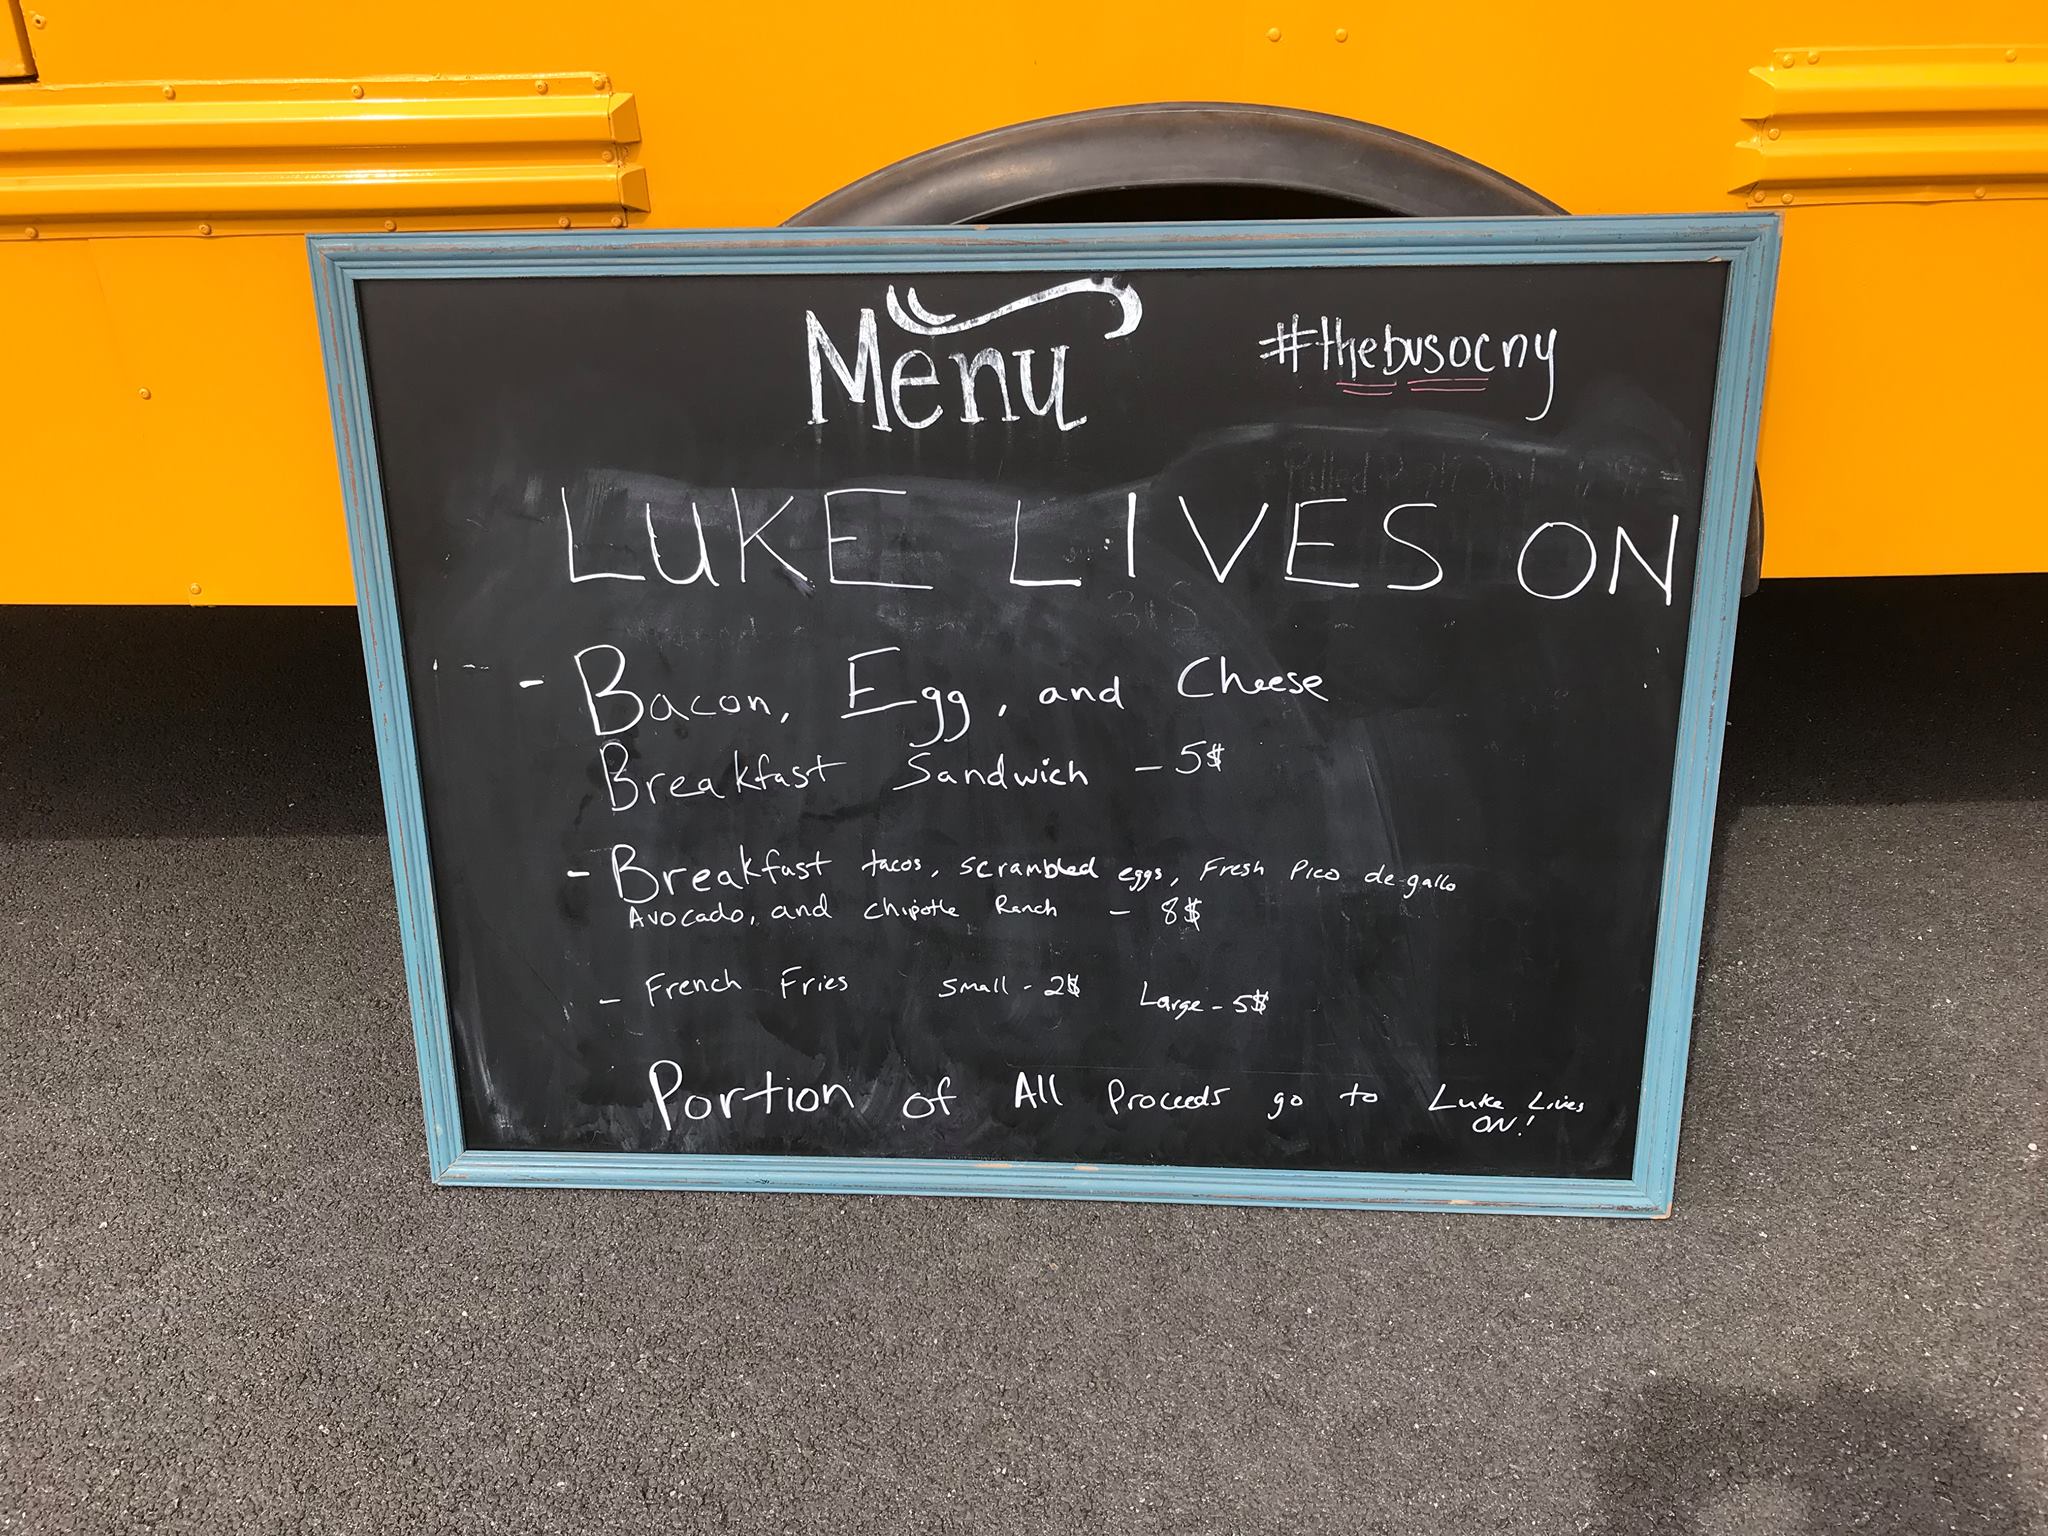 Menu
#thebusocny
LUKE LIVES ON
- Bacon, Egg, and Cheese
Breakfast Sandwich - 5$
- Breakfast tacos, scrambled eggs, Fresh Pico de gallo
Avocado, and Chipotle Ranch - 8$
- French Fries Small - 2$ Large - 5$
Portion of All Proceeds go to Luke Lives
ON!